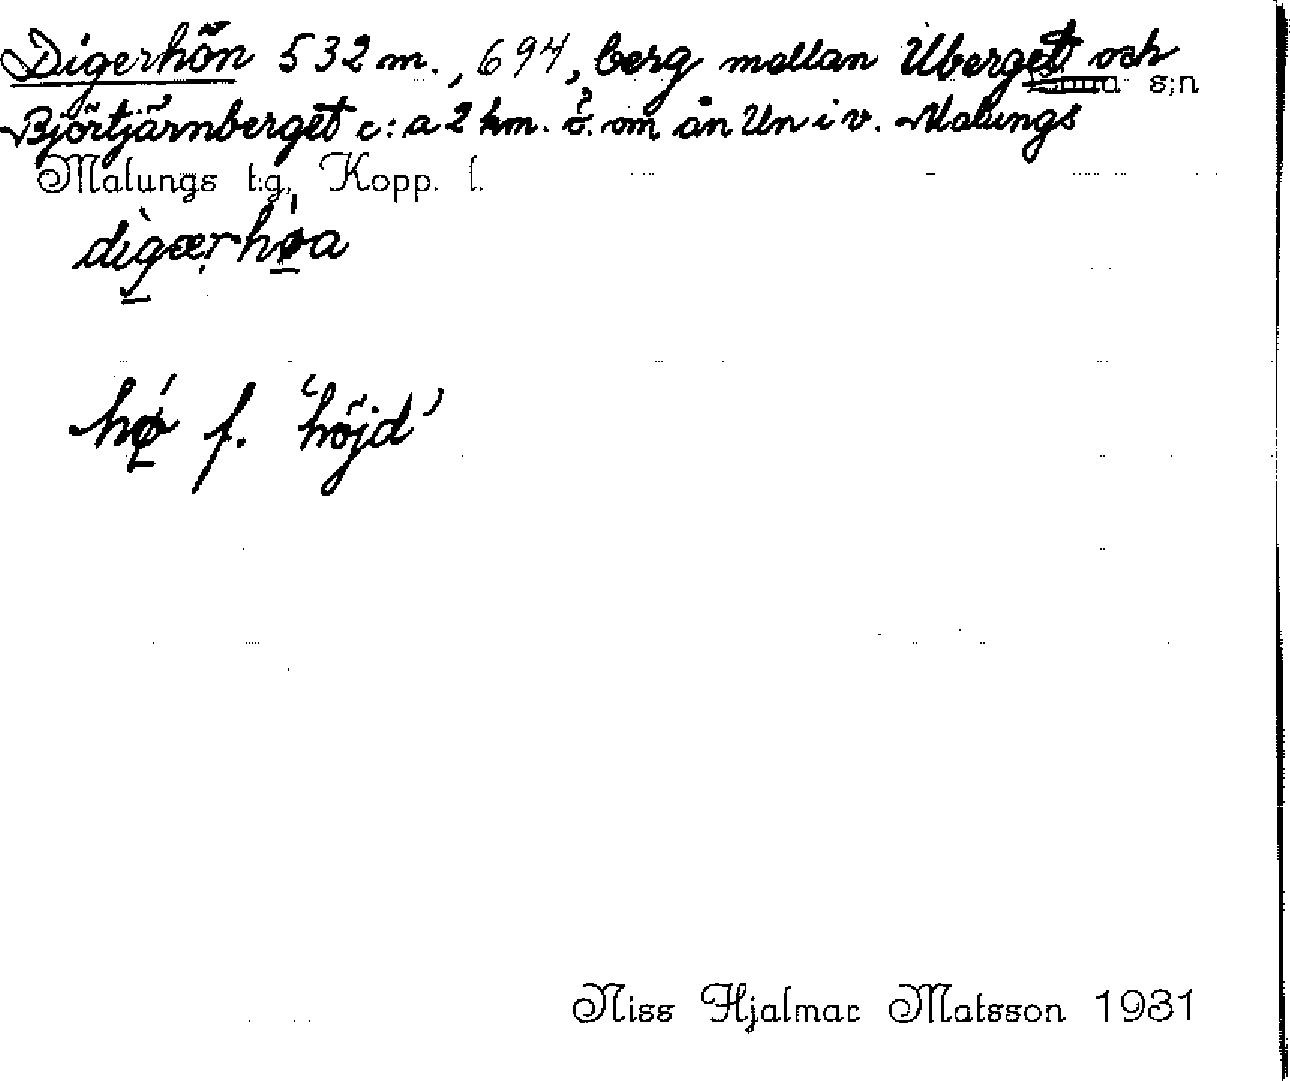 Digerhön 532 m., 694, berg mellan Uberget och
s:n
Björtjärnberget c:a 2 km. ö. om ån Un i v. Malungs
Malungs t:g, Kopp. l.
dìgærhø̀a
hǿ f. 'höjd'
Niss Hjalmar Matsson 1931